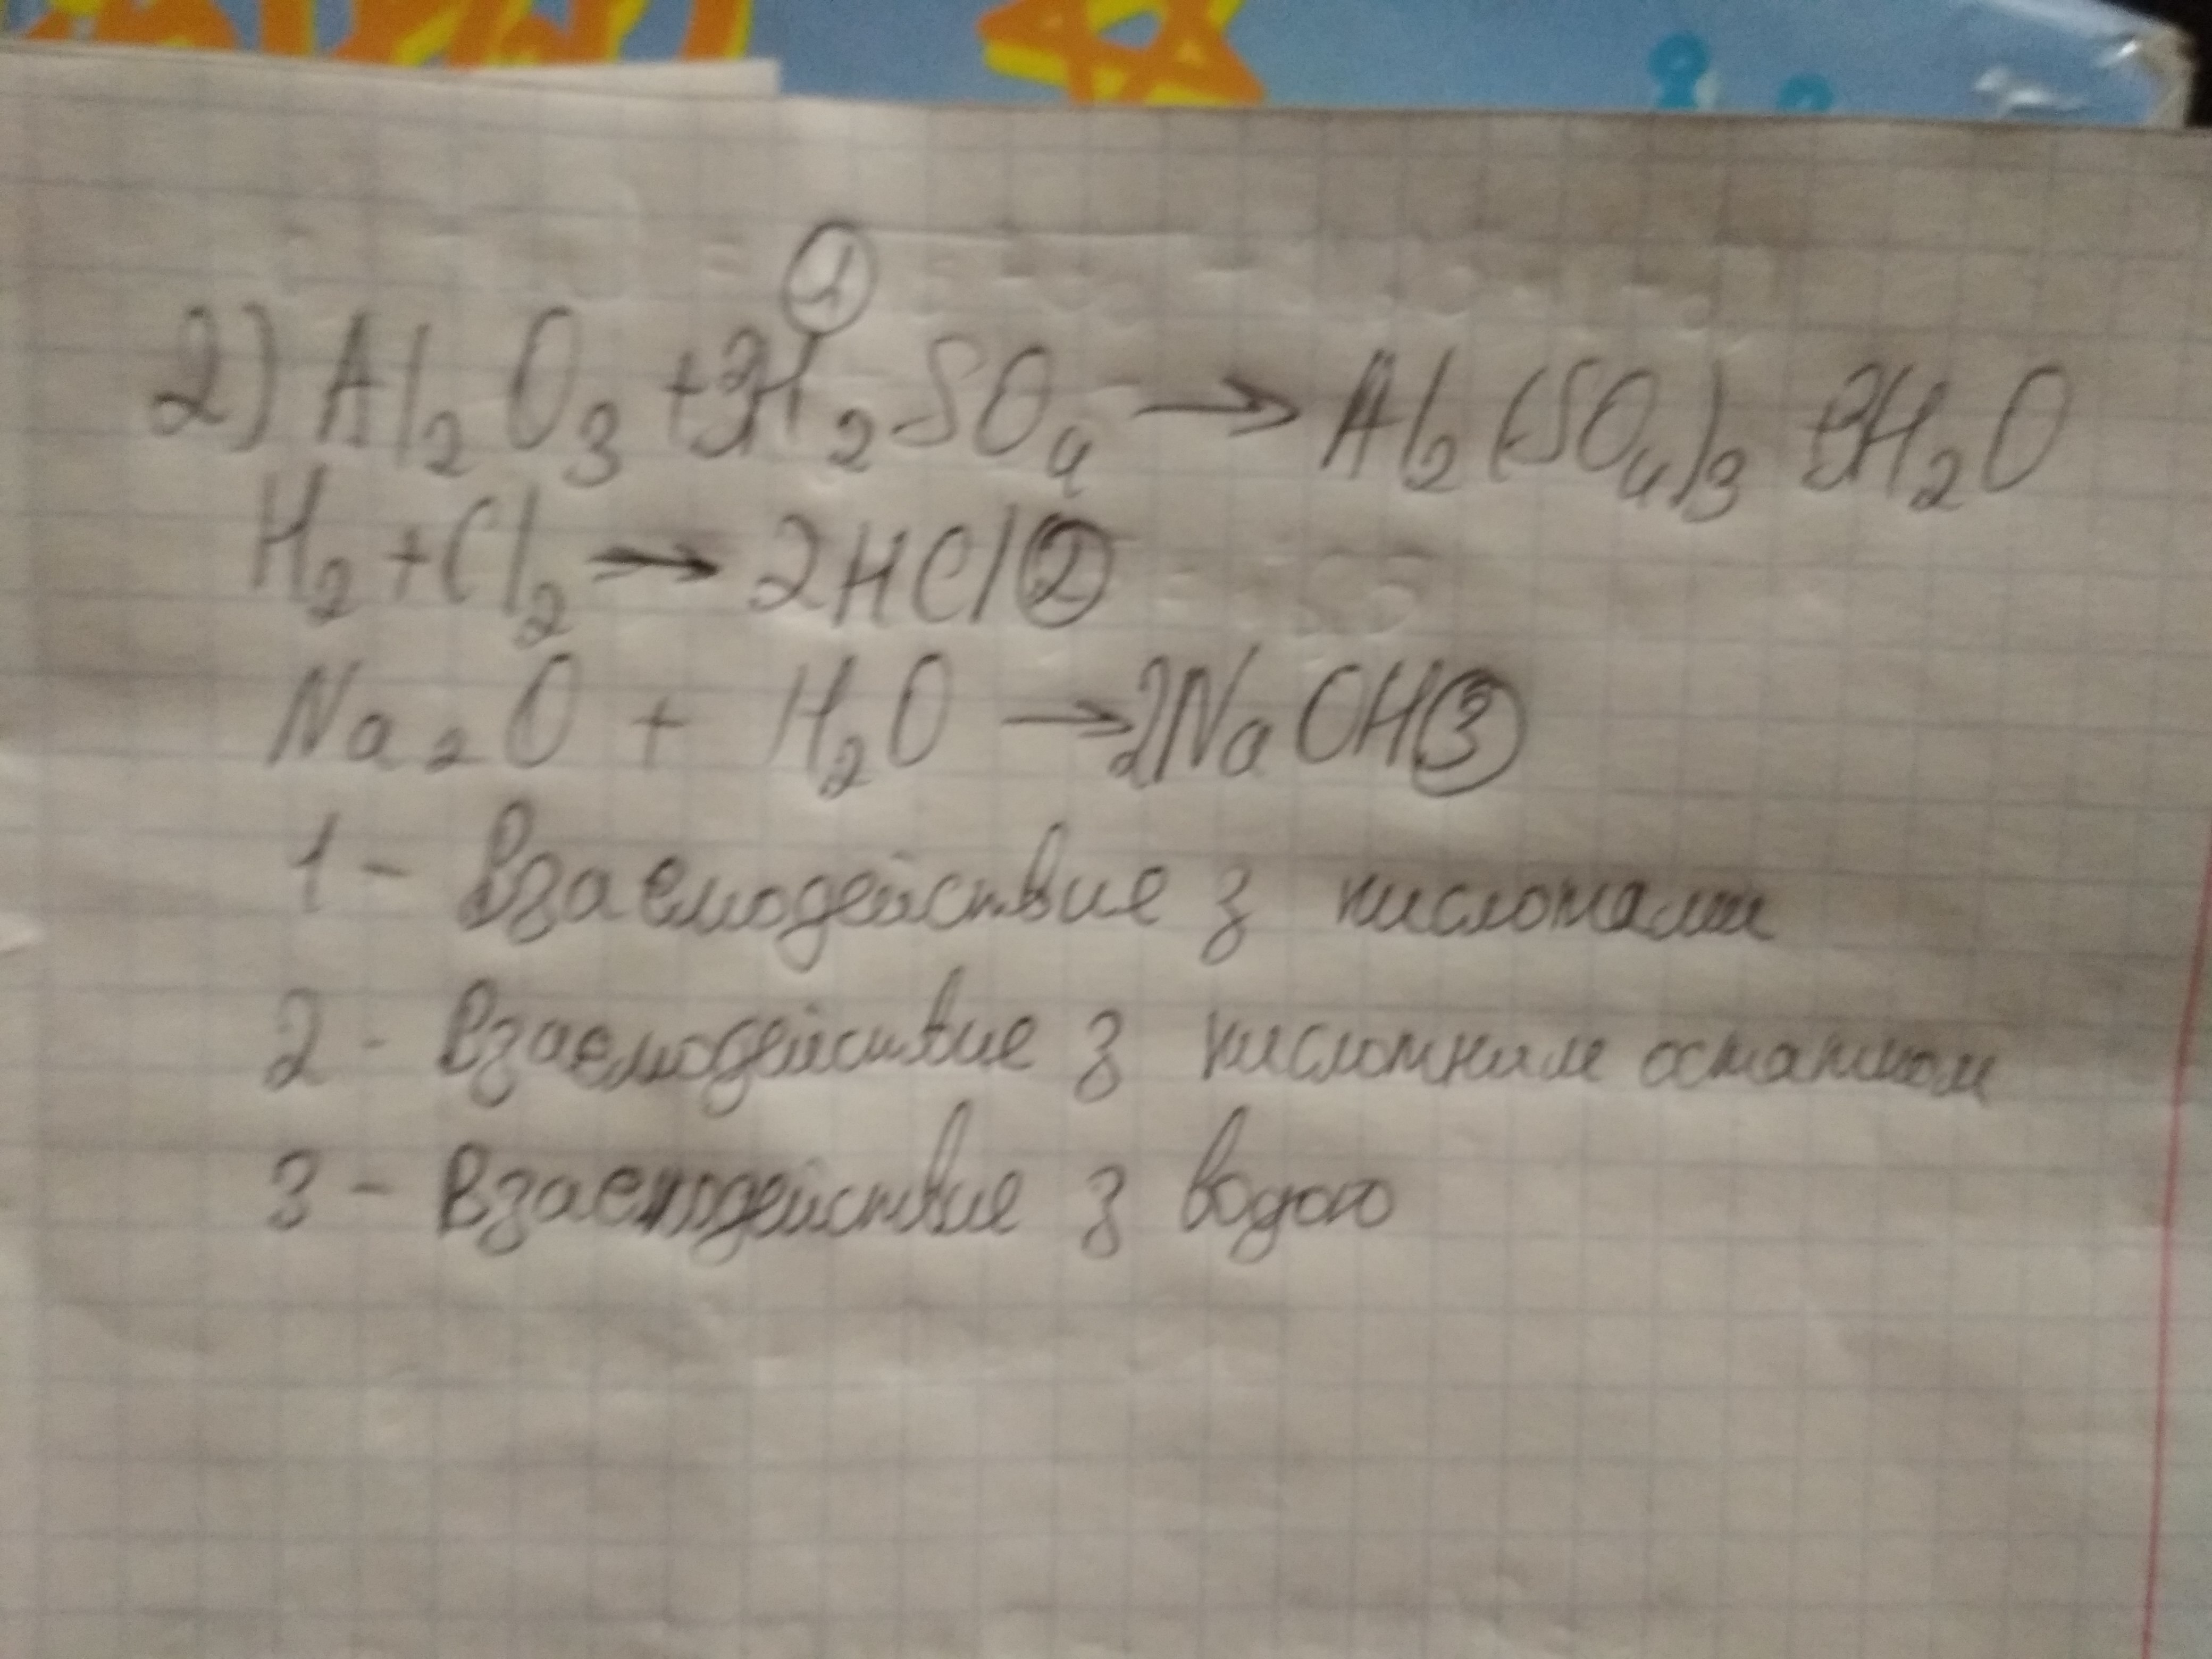 1
2) Al₂O₃ + 3H₂SO₄ → Al₂(SO₄)₃ 3H₂O
H₂ + Cl₂ → 2HCl 2
Na₂O + H₂O → 2NaOH 3
1 - Взаемодействие з кислотами
2 - Взаемодействие з кислотним остатком
3 - Взаемодействие з водою